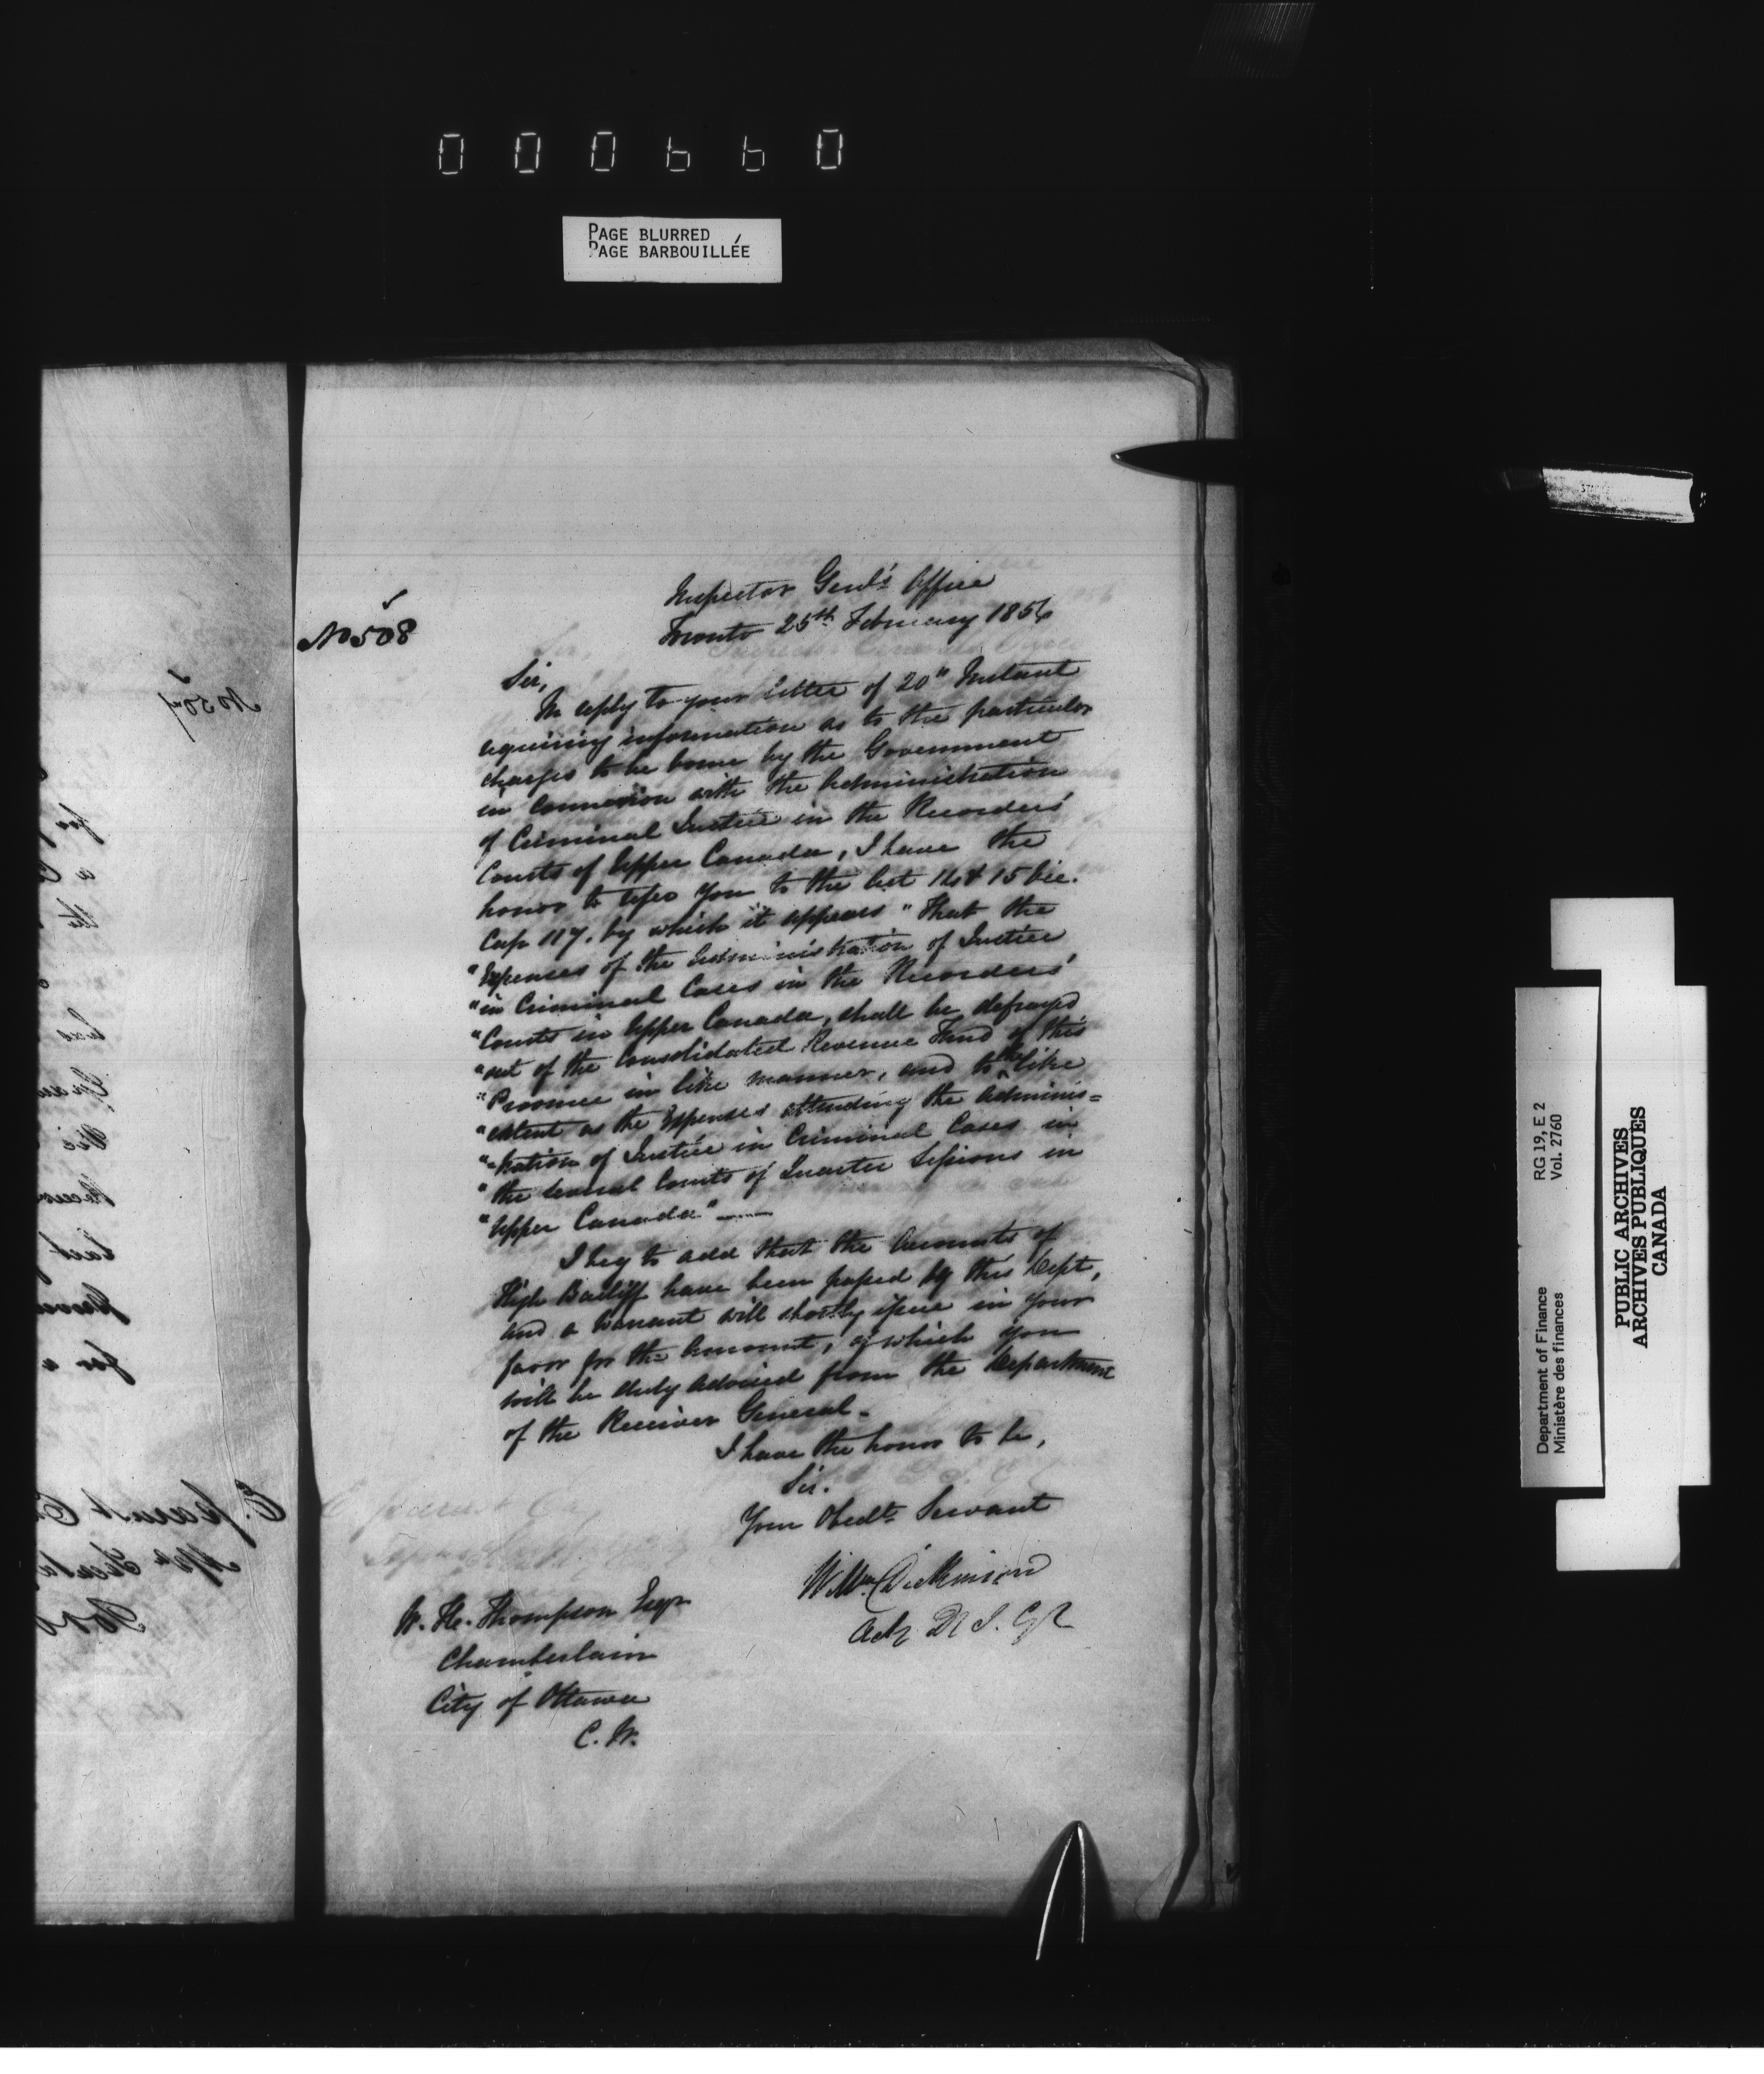 000660
PAGE BLURRED
PAGE BARBOUILLÉE
No 508
Inspector Genl's Office
Toronto 25th February 1856
Sir,
In reply to your letter of 20" Instant
requiring information as to the particular
charges to be borne by the Government
in connexion with the Administration
of Criminal Justice in the Recorders'
Courts of Upper Canada, I have the
honor to refer you to the Act 14 & 15 Vic.
Cap 117. by which it appears "That the
"Expenses of the Administration of Justice
"in Criminal Cases in the Recorders'
"Courts in Upper Canada, shall be defrayed
"out of the Consolidated Revenue Fund of this
"Province in like manner, and to the like
"extent as the Expenses attending the Adminis=
"-tration of Justice in Criminal Cases in
"the several Courts of Quarter Sessions in
"Upper Canada"
I beg to add that the Accounts of
High Bailiff have been passed by this Dept,
and a Warrant will shortly issue in your
favor for the Amount, of which you
will be duly advised from the Department
of the Receiver General.
I have the honor to be,
Sir.
Your Obedt. Servant
Wm. Dickinson
W. H. Thompson Esqr
Chamberlain
City of Ottawa
C. W.
No 507
Department of Finance RG 19, E 2
Ministère des finances Vol. 2760
PUBLIC ARCHIVES
ARCHIVES PUBLIQUES
CANADA